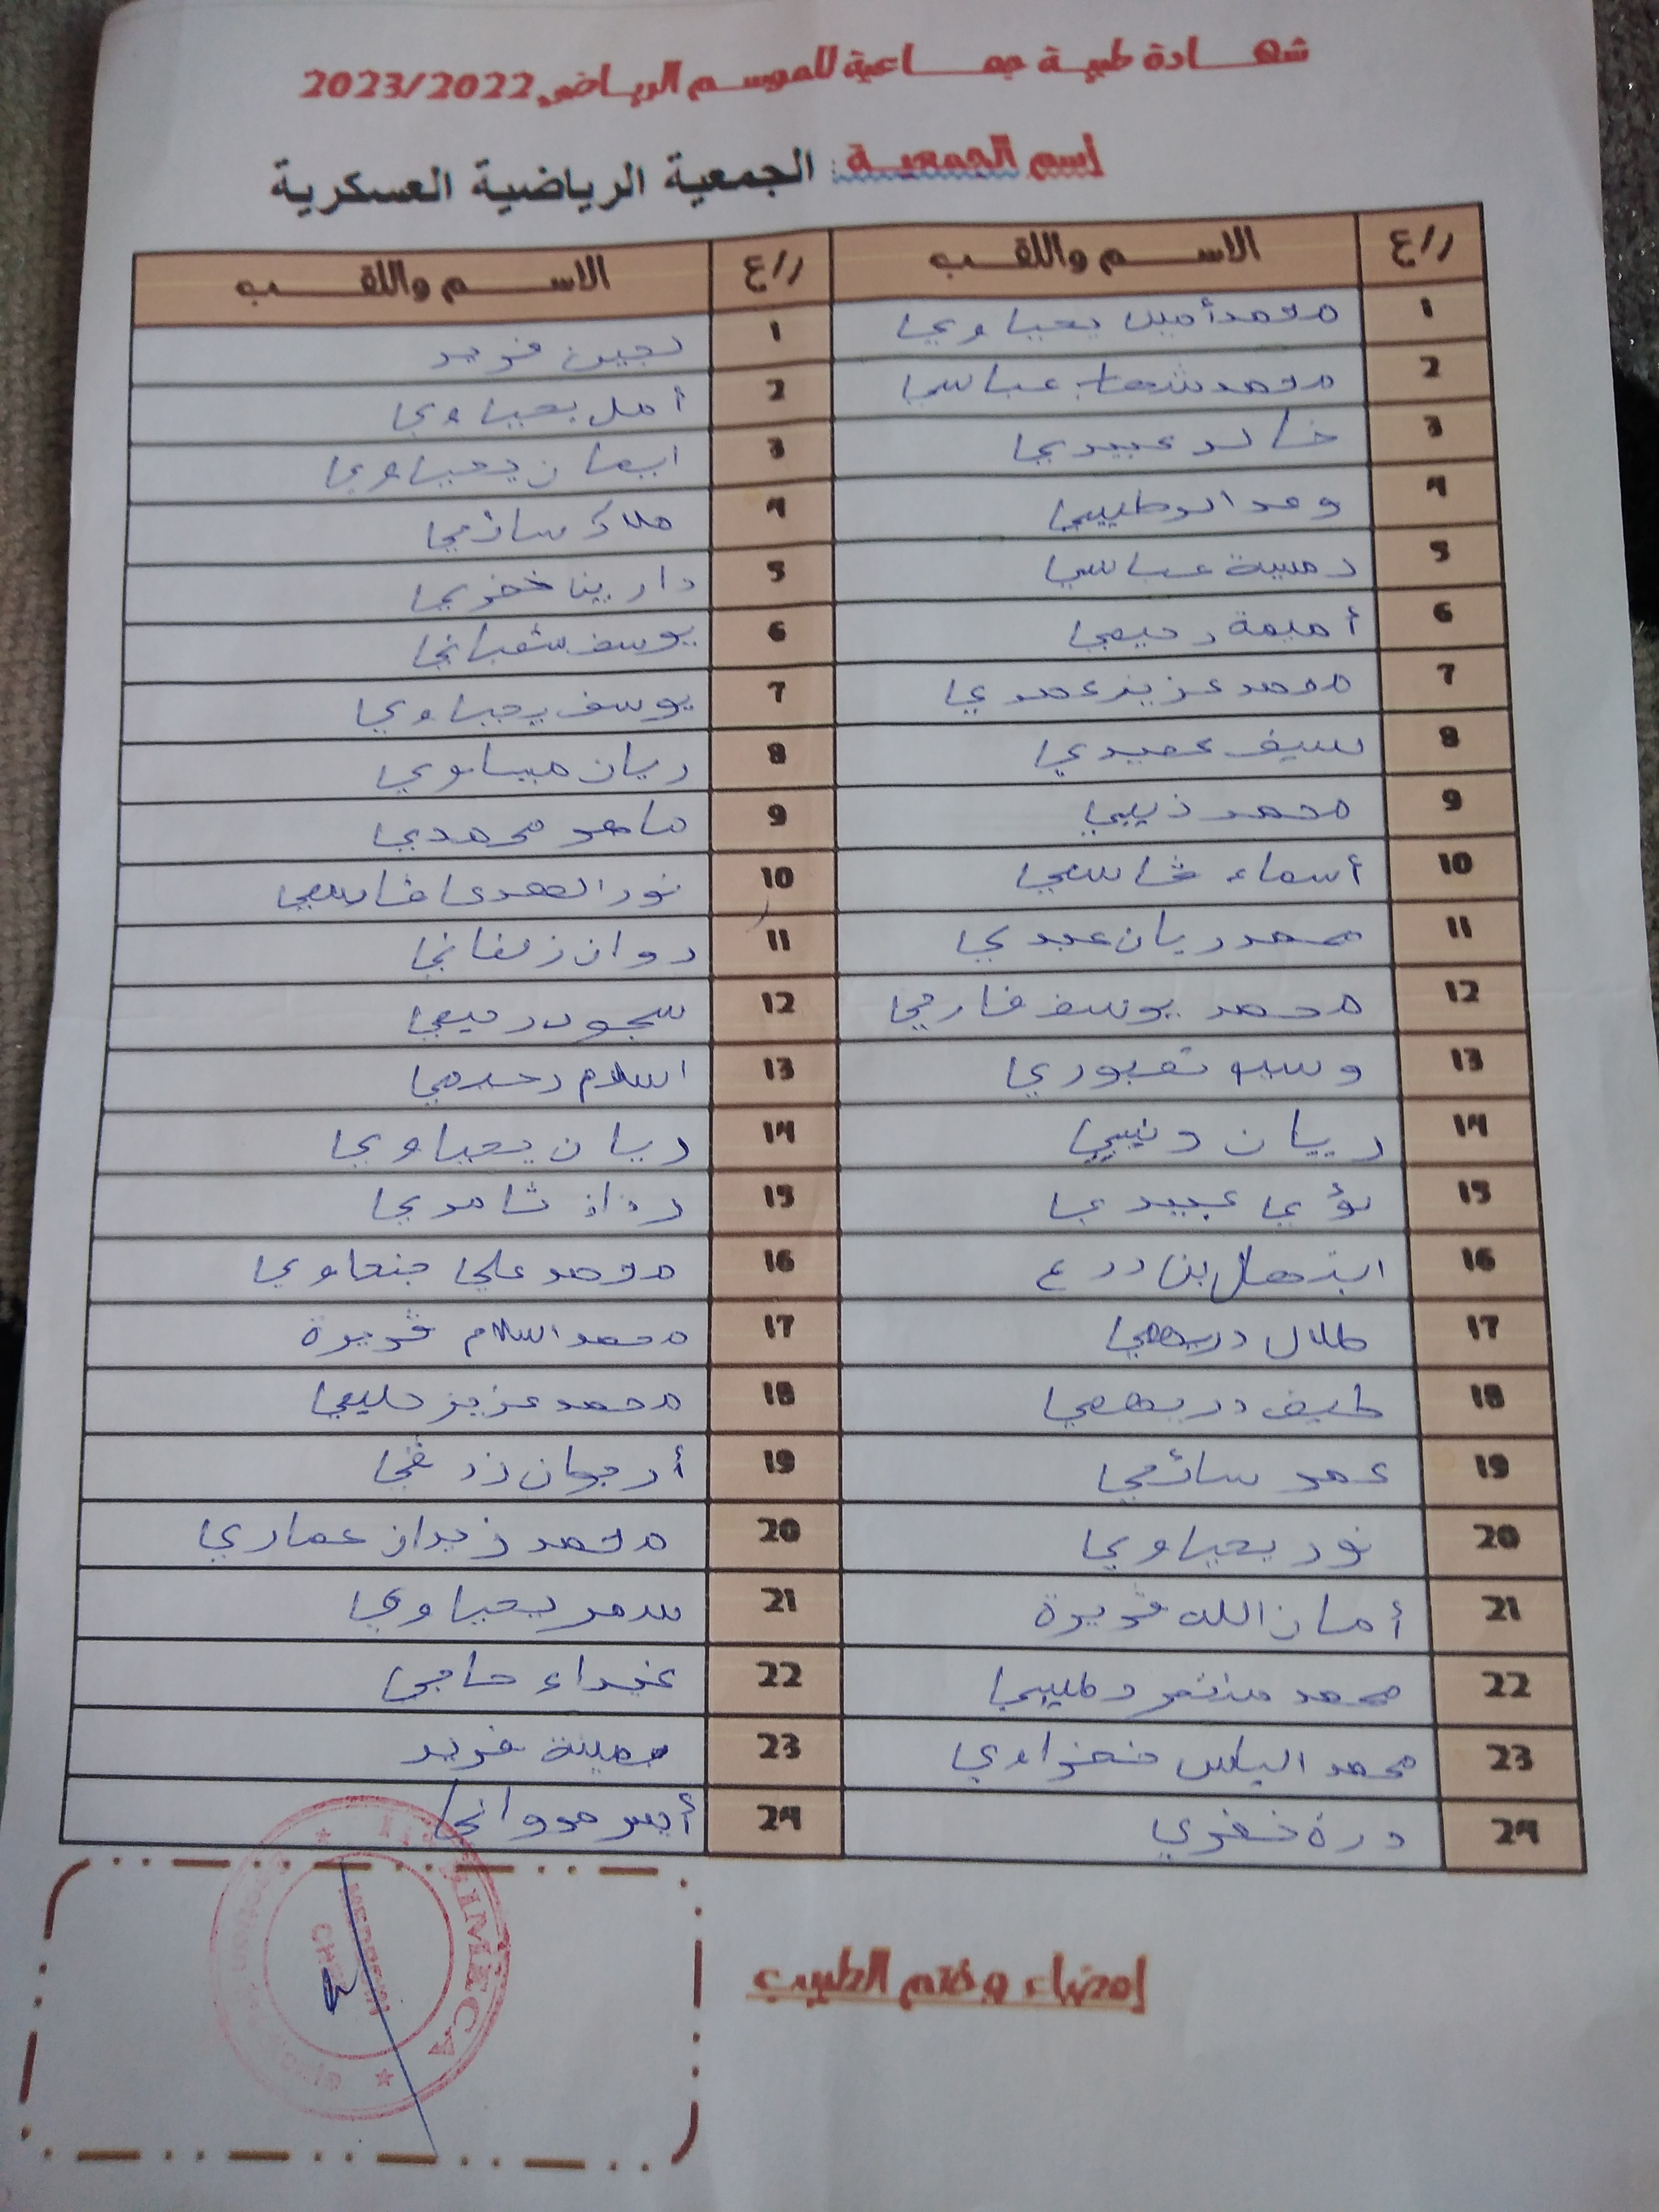 شهادة طبية جماعية للموسم الرياضي 2023/2022
إسم الجمعية: الجمعية الرياضية العسكرية
ر/ع الاسم واللقب ر/ع الاسم واللقب
1 محمد أمين يحياوي 1 لجين فريد
2 محمد شهاب عباسي 2 أمل يحياوي
3 خالد عبيدي 3 ايمان يحياوي
4 وعد الرطيبي 4 ملاك سائمي
5 عباسي 5 دارين خضري
6 أميمة رحيمي 6 يوسف شعباني
7 محمد عزيز عمري 7 يوسف يحياوي
8 سيف عميدي 8 ريان
9 محمد ذيبي 9 ماهر محمدي
10 أسماء قاسمي 10 نور الهدى قاسمي
11 محمد ريان عبدي 11 روان زلفاني
12 محمد يوسف 12 سجود رحيمي
13 13 اسلام رحيمي
14 ريان 14 ريان يحياوي
15 لؤي عبيدي 15 رذاذ ثامري
16 ابتهال بن درع 16 محمد علي
17 طلال دريهمي 17 محمد اسلام ڨريرة
18 طيف دريهمي 18 محمد عزيز حليمي
19 عمر سائمي 19 أرجوان زرڨي
20 نور يحياوي 20 محمد زيدان عماري
21 أمان الله ڨريرة 21 سمر يحياوي
22 محمد منتصر رطيبي 22 غيداء حاجي
23 محمد الياس 23 يمينة فريد
24 درة خضري 24 أيسر مرواني
إمضاء وختم الطبيب